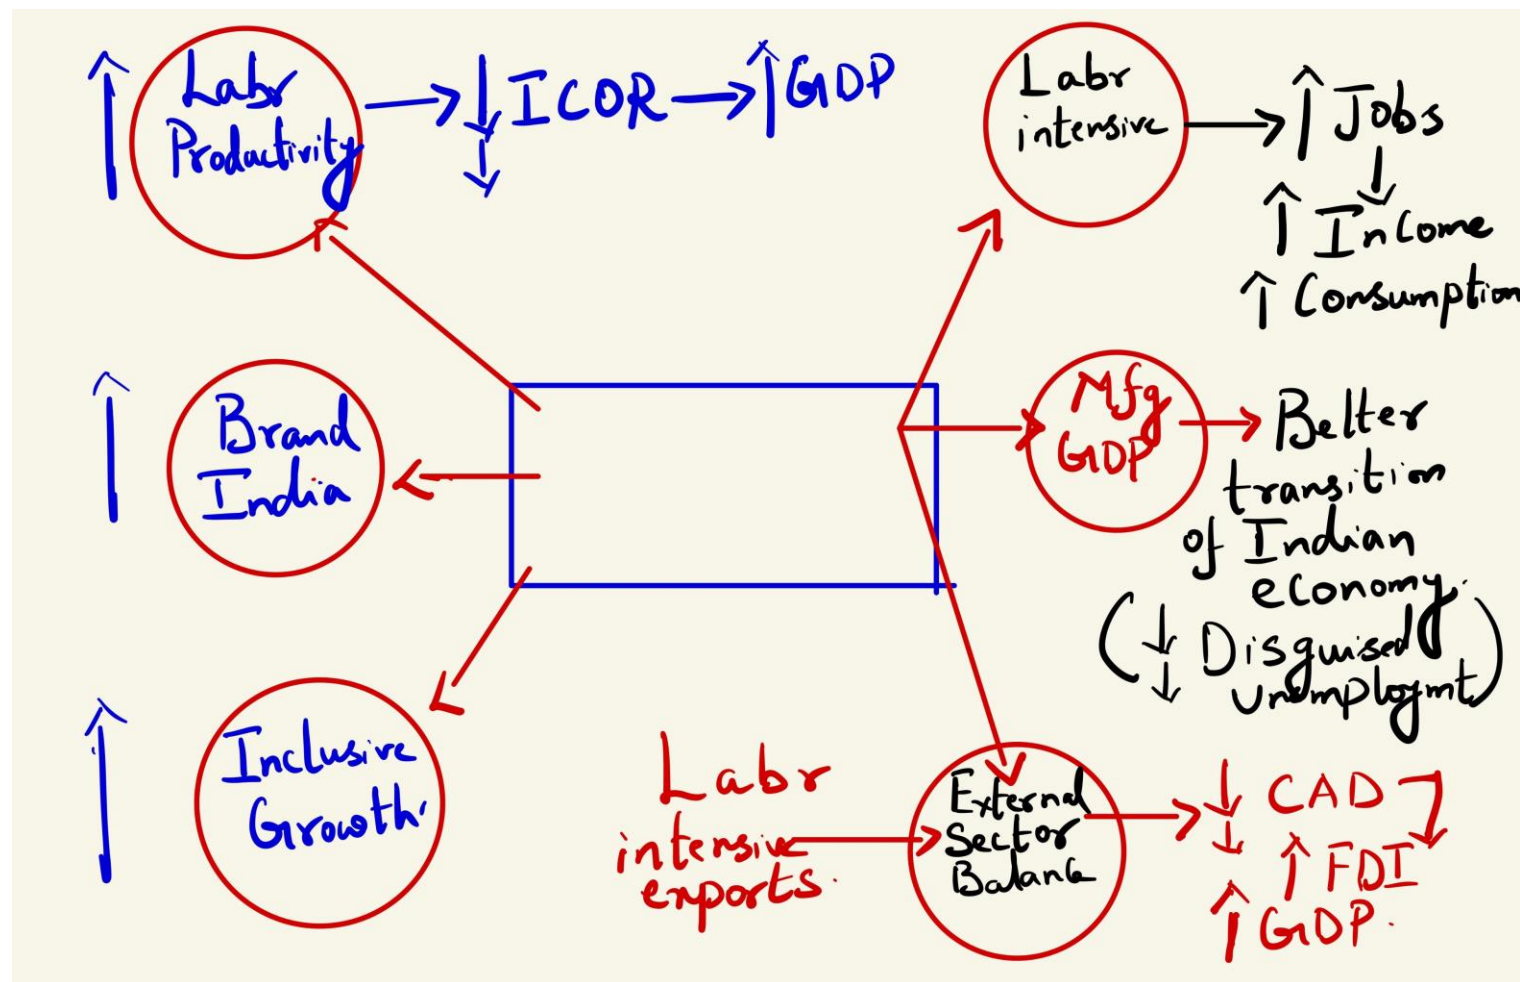 ↑ Labr
Productivity → ↓↓ ICOR → ↑ GDP
Labr
intensive → ↑ Jobs
↓
↑ Income
↑ Consumption
↑ Brand
India
Mfg
GDP → Better
transition
of Indian
economy.
(↓↓ Disguised
unemploymt)
↑ Inclusive
Growth
Labr
intensive
exports. →
External
Sector
Balance → ↓↓ CAD
↑ FDI
↑ GDP.